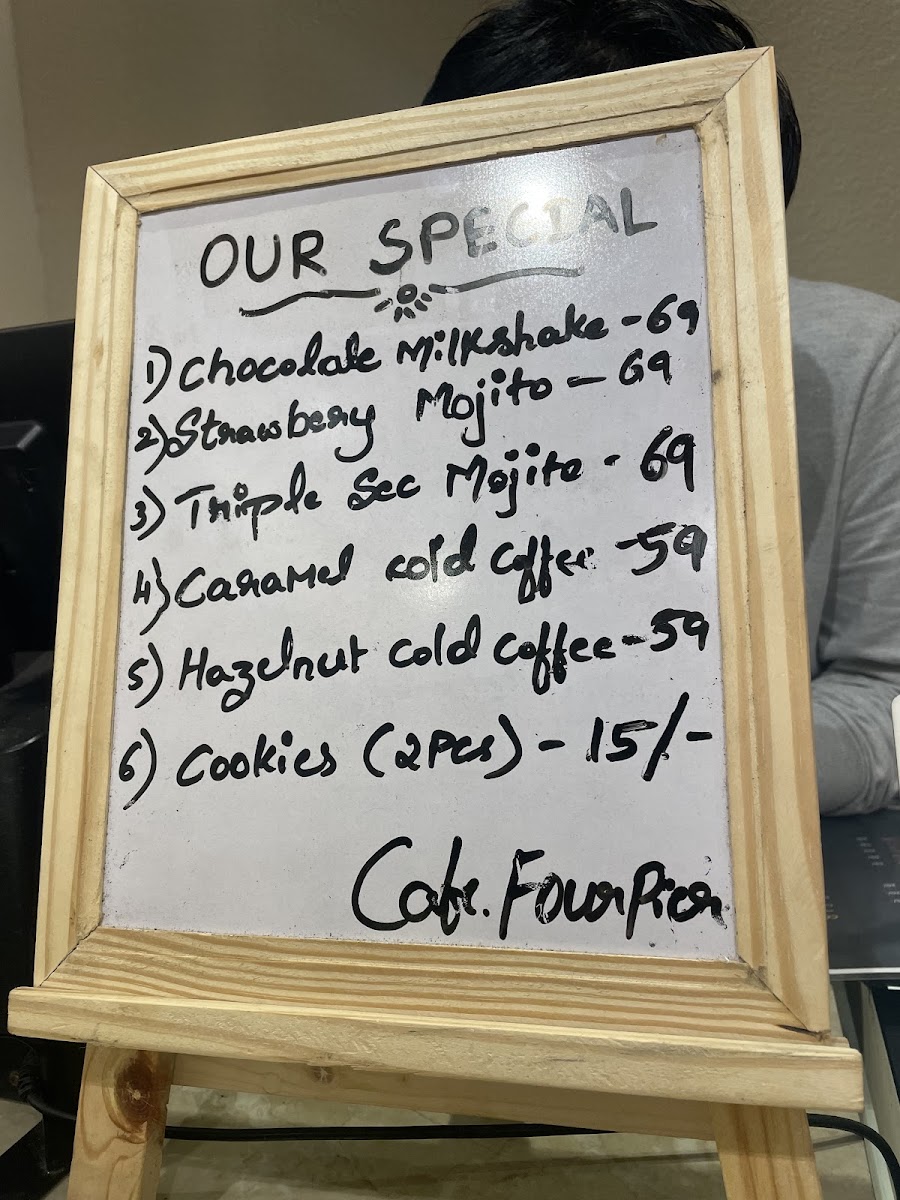 OUR SPECIAL
1) Chocolate Milkshake - 69
2) Strawberry Mojito - 69
3) Triple Sec Mojito - 69
4) Caramel cold coffee - 59
5) Hazelnut cold coffee - 59
6) Cookies (2 Pcs) - 15/-
Cafe. FourPier